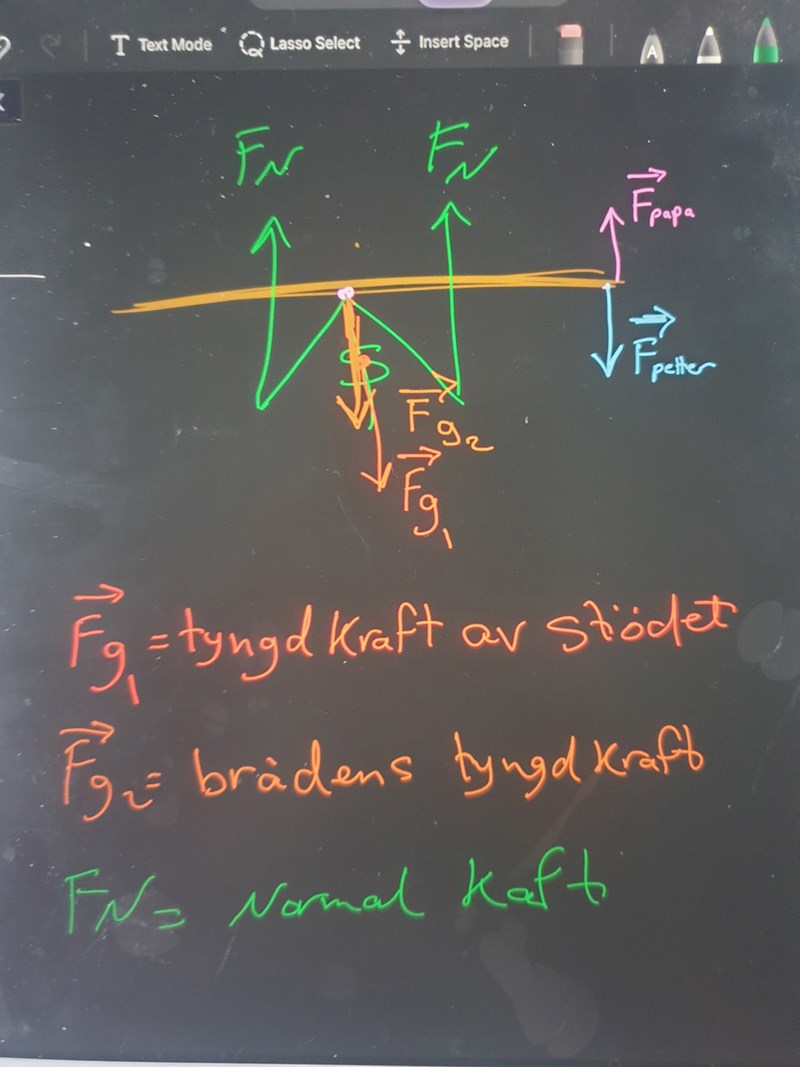 Text Mode Lasso Select Insert Space
A
FN FN
Fpapa
Fpetter
S
Fg2
Fg1
Fg1 = tyngdkraft av stödet
Fg2 = brådens tyngdkraft
FN = Normal kaft